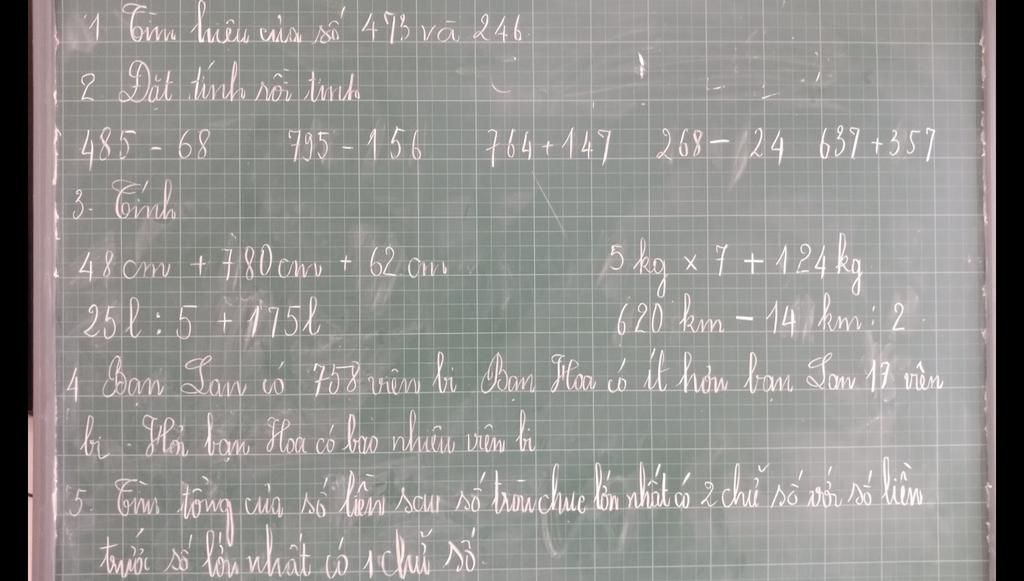 1 Tìm hiệu của số 473 và 246
2 Đặt tính rồi tính
485 - 68 795 - 156 764 + 147 268 - 24 637 + 357
3. Tính
48cm + 780cm + 62 cm 5 kg x 7 + 124kg
25l : 5 + 175l 620 km - 14 km : 2
4 Bạn Lan có 758 viên bi Bạn Hoa có ít hơn bạn Lan 17 viên
bi. Hỏi bạn Hoa có bao nhiêu viên bi
5. Tìm tổng của số liền sau số tròn chục lớn nhất có 2 chữ số với số liền
trước số lớn nhất có 1 chữ số.